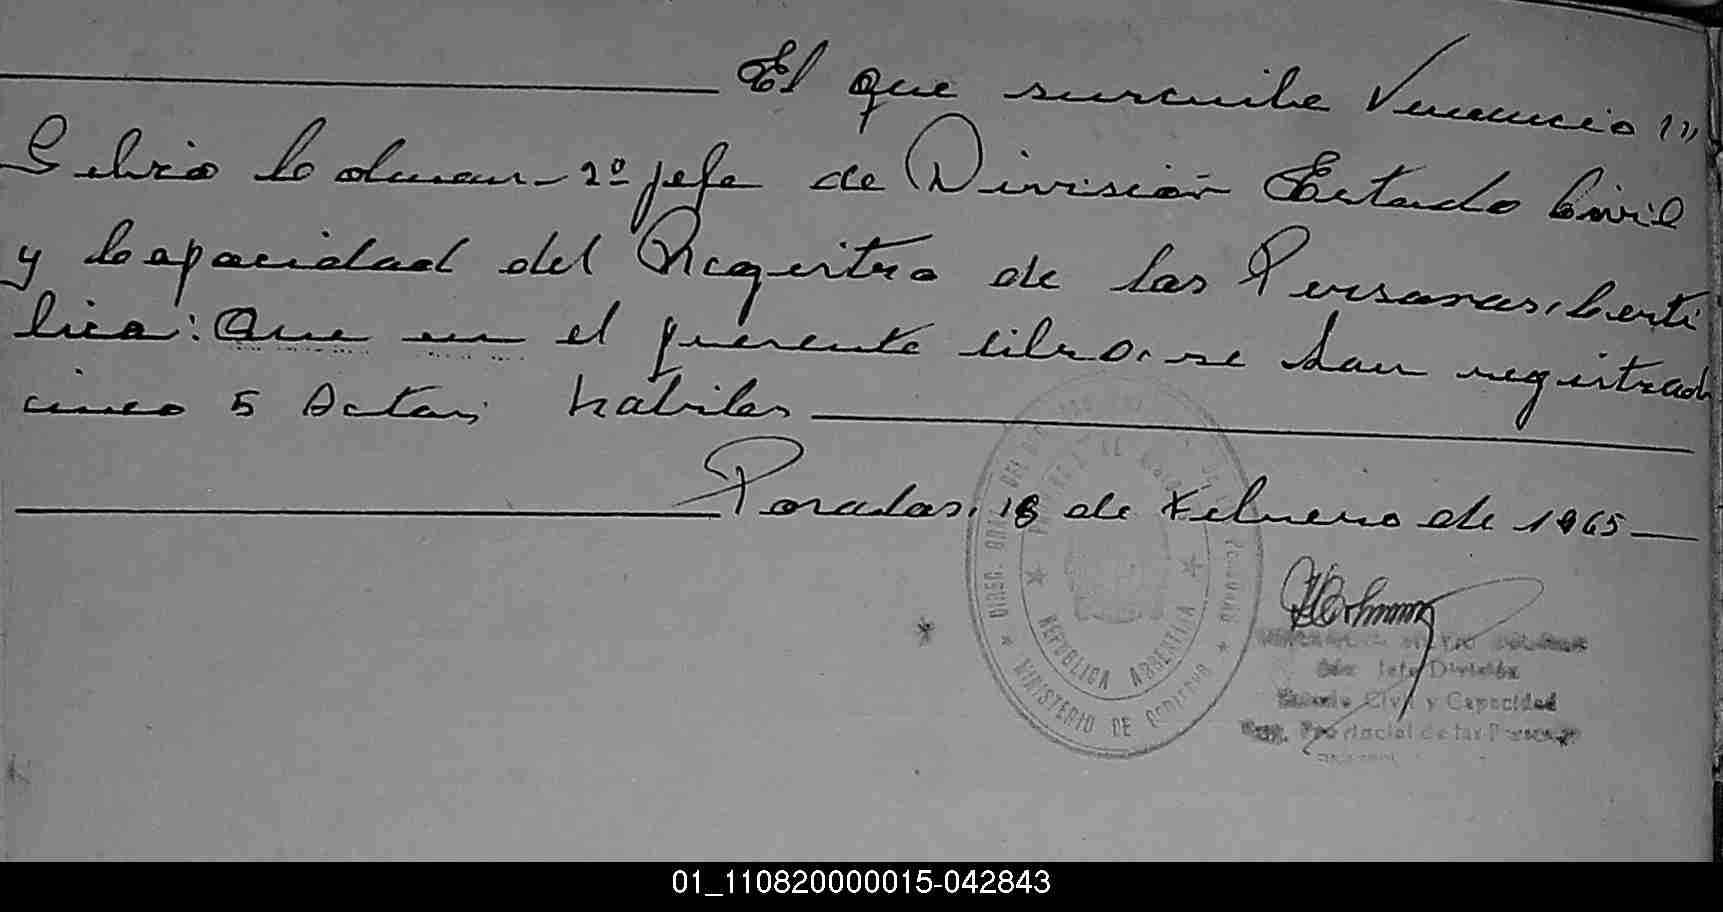 El que surcribe Venancio
Silvio Colman - 2º jefe de División Estado Civil
y Capacidad del Registro de las Personas, Certi
fica: Que en el presente libro, se han registrado
cinco 5 Actas, habiles
Posadas, 18 de Febrero de 1965
DIREC. GRAL. DEL
MINISTERIO DE GOBIERNO
REPUBLICA ARGENTINA
2do. Jefe División
Estado Civil y Capacidad
Reg. Provincial de las Personas
01_110820000015-042843